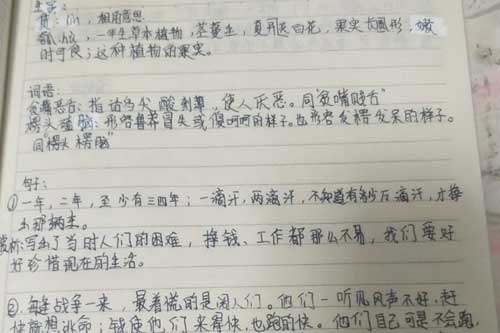 生字:
赁:lìn,租用意思
瓠 hù,一年生草本植物,茎蔓生,夏开天白花,果实长圆形,嫩
时可食;这种植物的果实。
词语:
贫嘴恶舌:指话多尖酸刻薄,使人厌恶。同"贫嘴贱舌"
楞头磕脑:形容鲁莽冒失或傻呵呵的样子。也形容发楞发呆的样子。
同"楞头楞脑"
句子:
①一年,二年,至少有三四年;一滴汗,两滴汗,不知道有多少万滴汗,才挣
出那辆车。
写出了当时人们的困难,挣钱、工作都那么不易,我们要好
好珍惜现在的生活。
②每逢战争一来,最着慌的是阔人们。他们一听见风声不好,赶
快就想逃命;钱使他们来得快,也跑的快。他们自己可是不会跑,